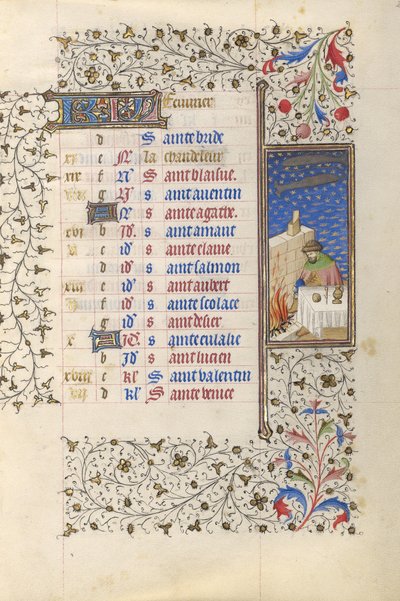 feurier
d Sainte bride
xi e N la chandeleur
xix f N Saint blaisue
viii g N s aint auentin
A N s ainte agathe.
xvi b id s aint amant
v c id s ainte elaine
d id s aint salmon
xiii e id s aint aubert
ii f id s ainte scolace
g id s aint desier
x A id s ainte eulalie
b id s aint lucien
xviii c kl Saint valentin
vii d kl Sainte venice